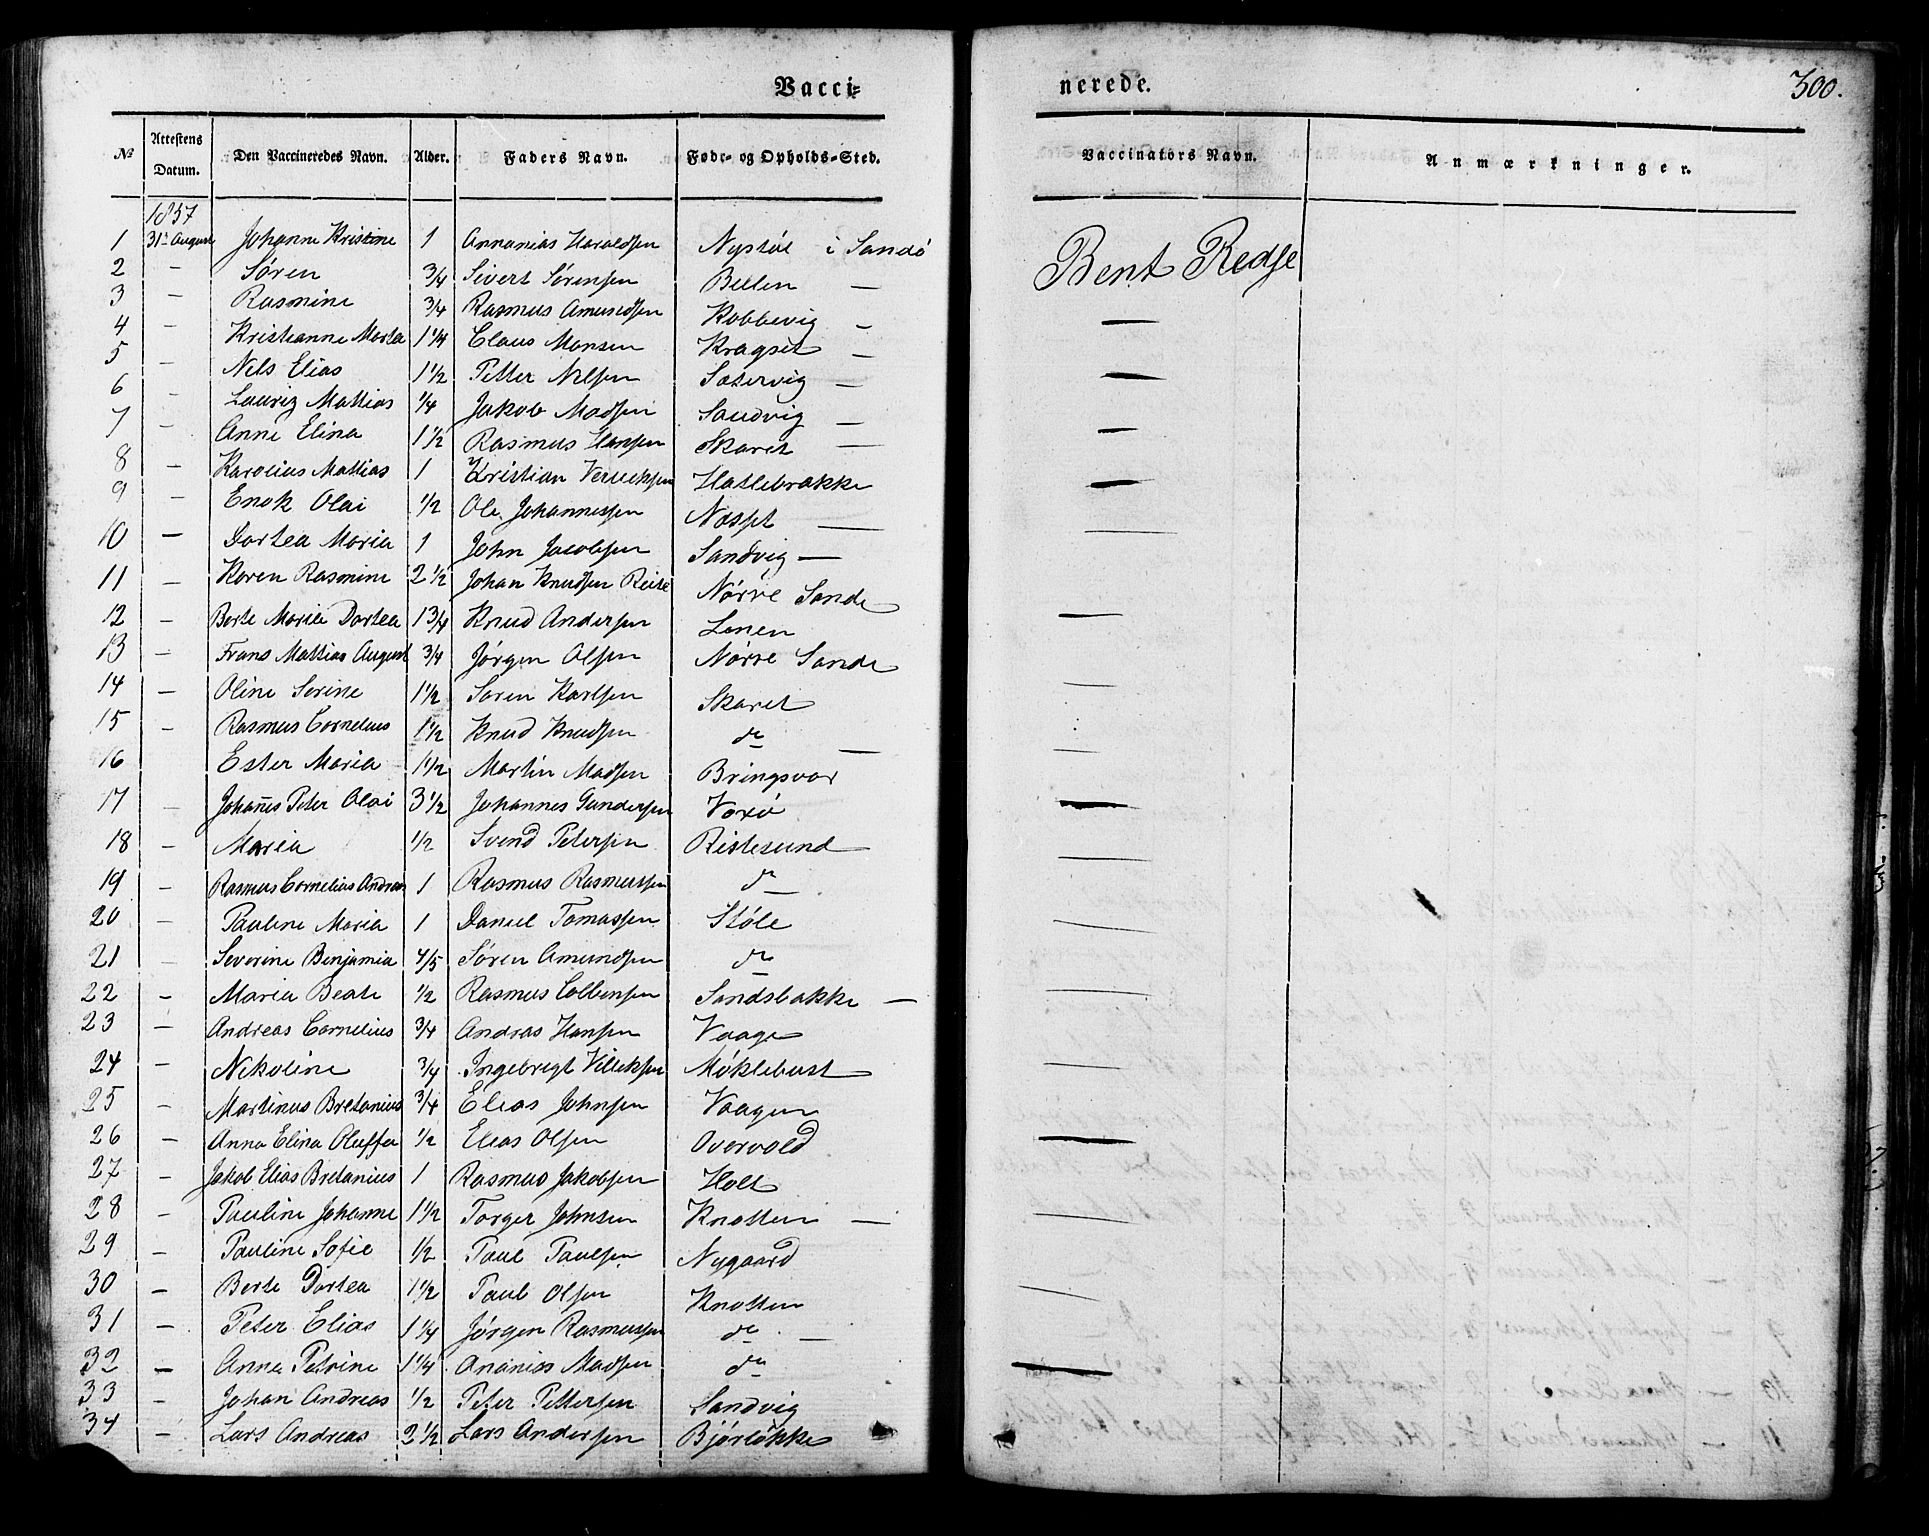 Vacci-
nerede.
300.
№ Attestens Datum. Den Vaccineredes Navn. Alder. Faders Navn. Føde- og Opholds-Sted. Vaccinators Navn. Anmærkninger.
1857
1 31te August Johanne Kristine 1 Annanias Haraldsen Nystøl i Sandö Bent Redse
2 — Søren 3/4 Sivert Sørensen —
3 — Rasmine 3/4 Rasmus Amundsen Kobbevig — —
4 — Kristianne Marta 1 1/4 Claus Monsen Kragset —
5 — Nels Elias 1 1/2 Petter Nelsen Sætervig — —
6 — Lauriz Mattias 1/4 Jakob Madsen Sandvig —
7 — Anne Elina 1 1/2 Rasmus Hansen Skaret — —
8 — Karolius Mattias 1 Kristian Hatlebrække —
9 — Enok Olai 1/2 Ole Johannessen Næsset —
10 — Dortea Maria 1 John Jacobsen Sandvig — —
11 — Karen Rasmine 2 1/2 Johan Knudsen Reite Nørve Sande
12 — Berte Maria Dortea 1 3/4 Knud Andersen Lenen —
13 — Frans Mattias August 3/4 Jørgen Olsen Nørve Sande
14 — Oline Serine 1 1/2 Søren Karlsen Skaret —
15 — Rasmus Cornelius 1 1/2 Knud Knudsen do —
16 — Ester Maria 1 1/2 Martin Madsen Bringsvor —
17 — Johañes Peter Olai 3 1/2 Johannes Gundersen Voxö —
18 — Maria 1/2 Svend Petersen Ristesund
19 — Rasmus Cornelius Andreas 1 Rasmus Rasmussen do —
20 — Pauline Maria 1 Daniel Tomassen Støle
21 — Severine Benjamia 4/5 Søren Amundsen do —
22 — Maria Beate 1/2 Rasmus Colbensen Sandsbakke — —
23 — Andreas Cornelius 3/4 Andras Hansen Vaage
24 — Nikoline 3/4 Ingebregt Villiksen Møklebust —
25 — Martinus Bretanius 3/4 Elias Johnsen Vaagen
26 — Anna Elina Oluffa 1/2 Elias Olsen Overvold —
27 — Jakob Elias Bretanius 1 Rasmus Jakobsen Holt
28 — Pauline Johanne 1 1/2 Torger Johnsen Knotten — —
29 — Pauline Sofie 1/2 Paul Paulsen Nygaard
30 — Berte Dortea 1 1/2 Paul Olsen Knotten —
31 — Peter Elias 1 1/4 Jørgen Rasmussen do —
32 — Anna Petrine 1 1/4 Ananias Madsen do —
33 — Johan Andreas 1/2 Peter Pettersen Sandvig
34 — Lars Andreas 2 1/2 Lars Andersen Bjørløkke